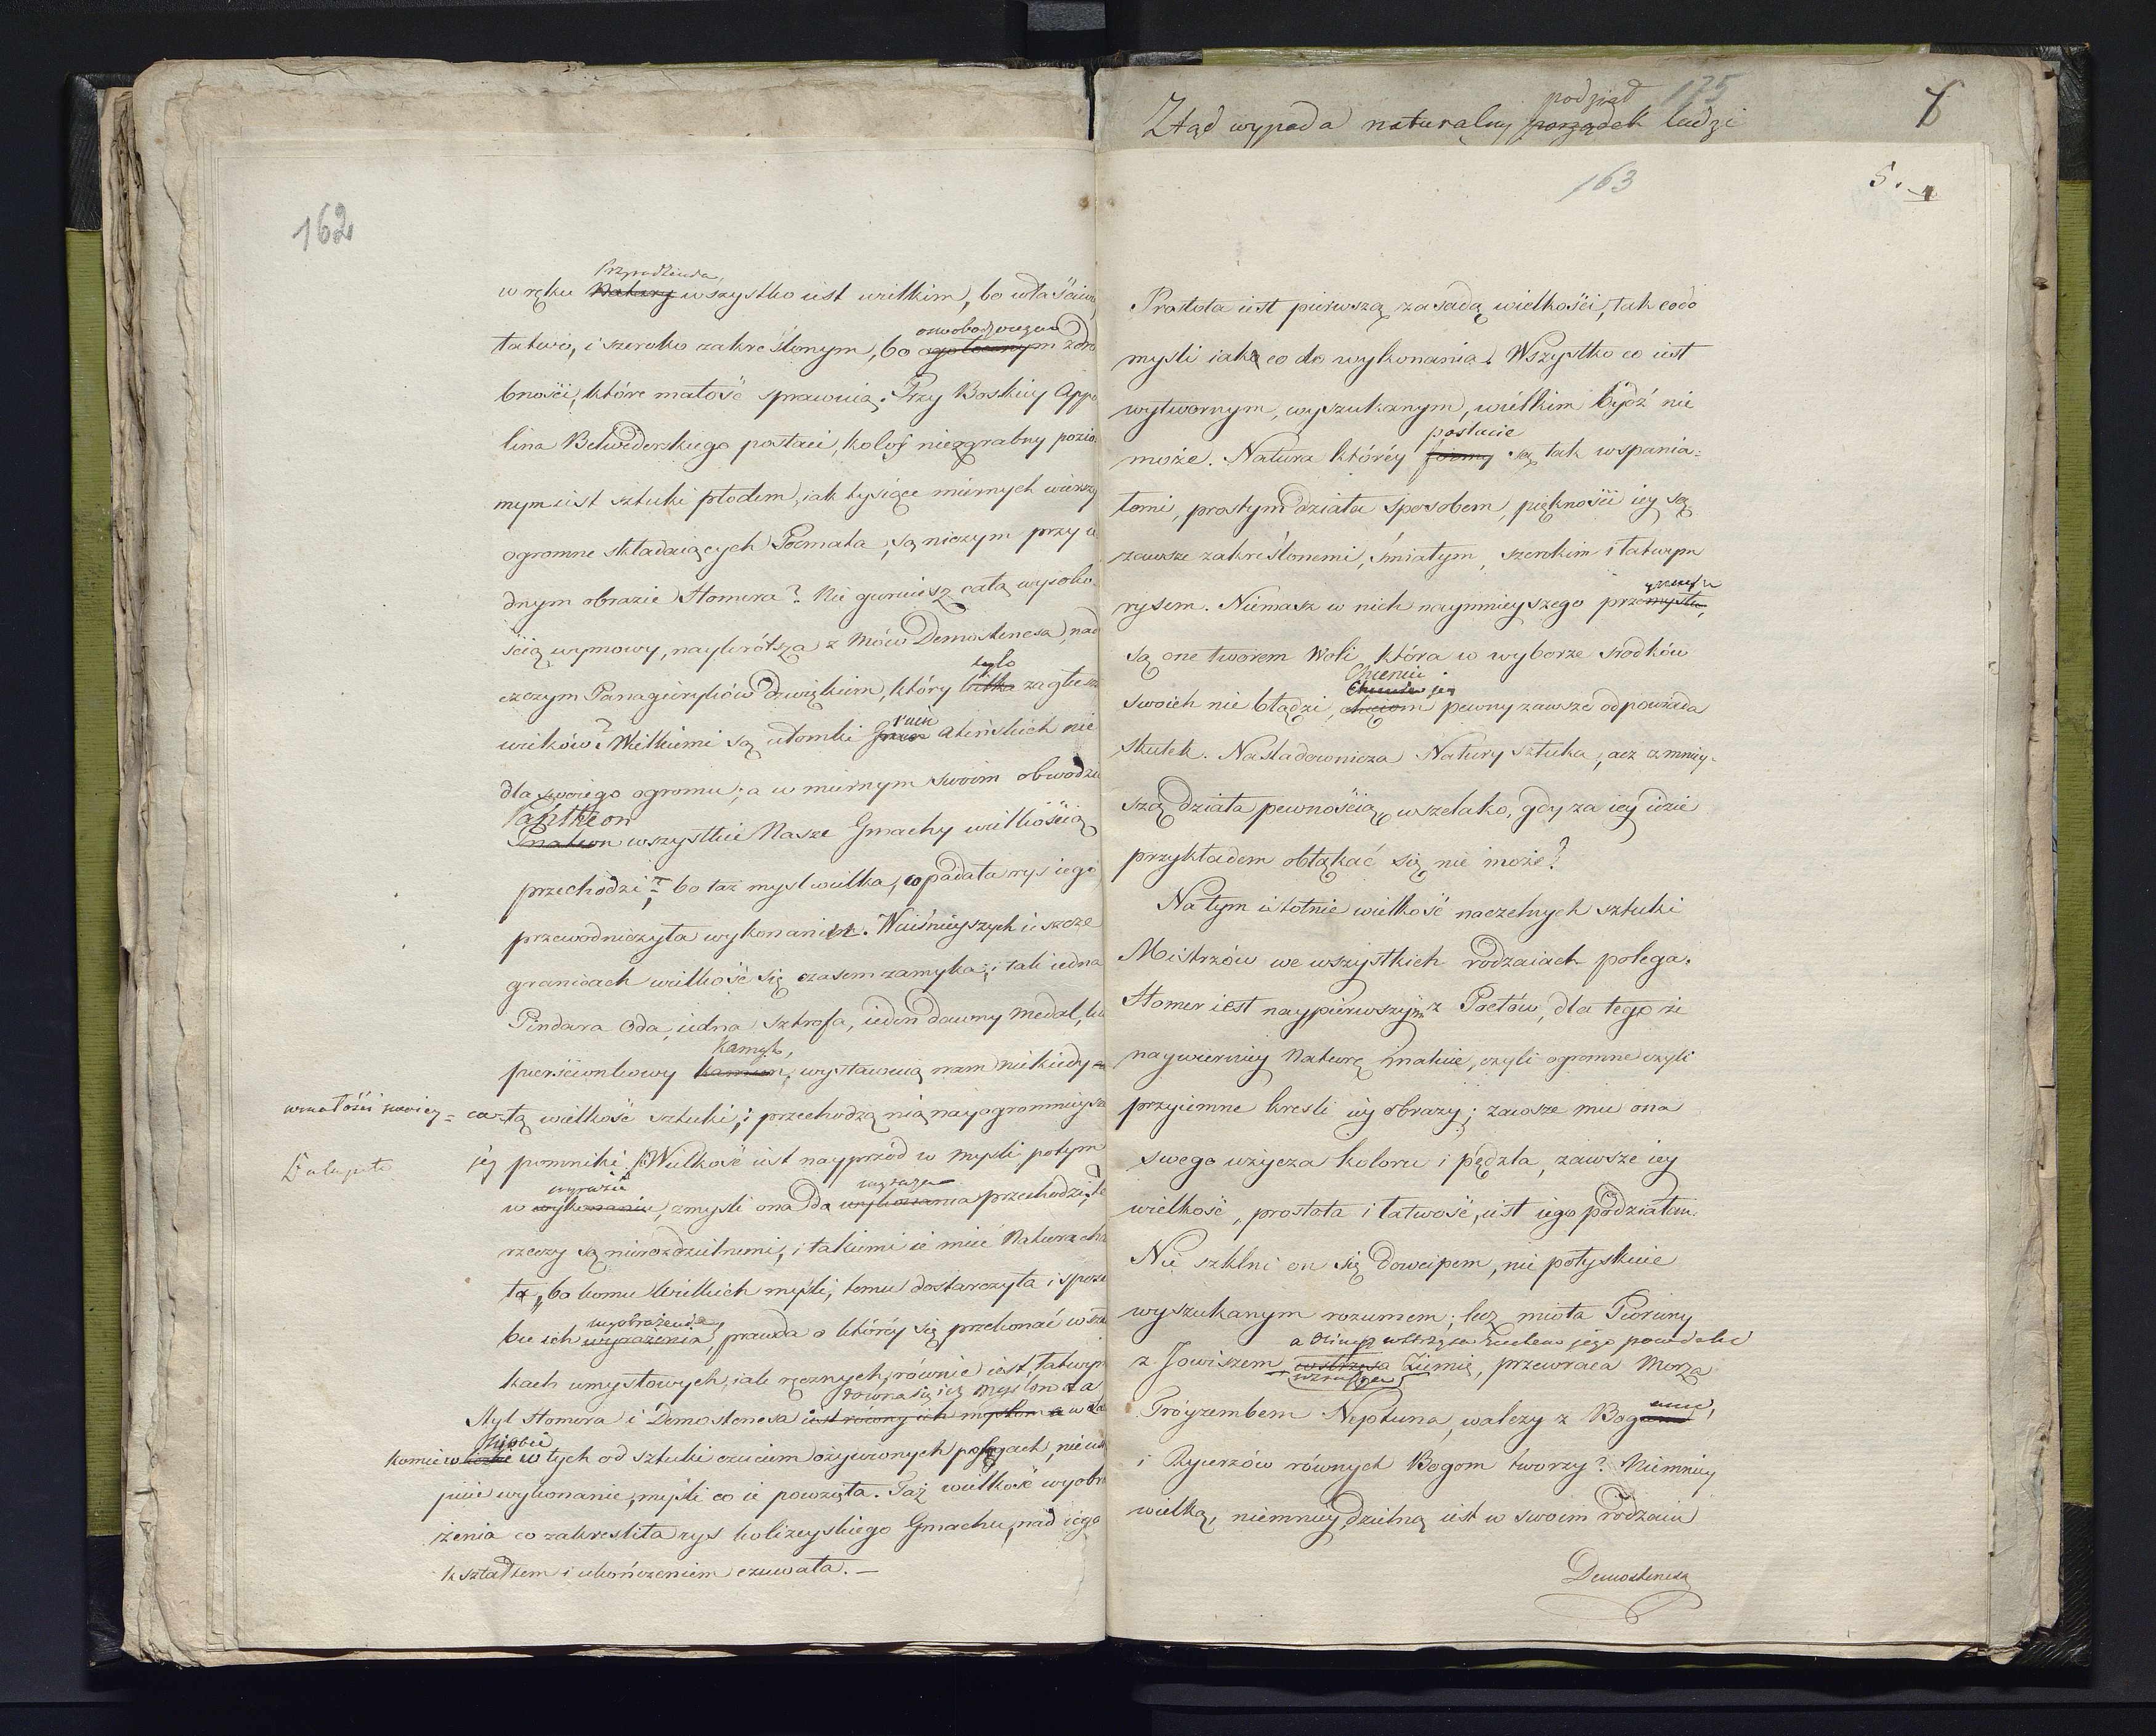 162
Przyrodzenia
w ręku Natury wszystko iest wielkim, bo właściwie
oswobodzonym
łatwo, i szeroko zakreślonym, bo ogołoconym z dro
bności, które małość sprawuią. Przy Boskiey Appo
lina Belwederskiego postaci, kolos niezgrabny pozio
mym iest sztuki płodem, iak tysiące miernych wierszy
ogromne składaiących Poemata, są niczym przy ie
dnym obrazie Homera? Nie góruiesz całą wysoko
ścią wymowy, naykrótsza z Mów Demostenesa, nad
tylo
czczym Panegiryków dźwiękiem, który kilka zagłusza
ruin
wieków? Wielkiemi są ułomki Ateńskich nie
dla swoiego ogromu; a w miernym swoim obwodzie
Pantheon
Panteon wszystkie Nasze Gmachy wielkością
przechodzi; bo taż myśl wielka, co padała rys iego
przewodniczyła wykonaniu. W cieśnieyszych ieszcze
granicach wielkość się czasem zamyka; i tak iedna
Pindara Oda, iedna sztrofa, ieden dawny Medal, lub
Kamyk,
pierścionkowy kamien, wystawuią nam niekiedy
w małości swoiey = ca-łą wielkość sztuki; i przechodzą nią nayogromniejsze
jej pomniki. Wielkość iest nayprzód w myśli potym
wyrazie wyrazu
w wykonaniu, z myśli ona do wykonania przechodzi, te
rzeczy są nierozdzielnemi, i takiemi ie mieć Natura chcia
ła, bo komu wielkich myśli, temu dostarczyła i sposo
wyobrażenia
bu ich wyrażenia, prawda o którey się przekonać w sztu
kach umysłowych, iak ręcznych, równie iest łatwym
równa się ich myślom
Styl Homera i Demostenesa iest równy ich myślom a w Lao
Niobie
komie w w tych od sztuki czuciem ożywionych posągach, nie ustę
puie wykonanie, myśli co ie poczęła. Taż wielkość wyobra
żenia co zakreśliła rys kolizeyskiego Gmachu, nad iego
kształtem i ukończeniem czuwała. —
175
podział
Ztąd wypada naturalny porządek ludzi
163
5.
Prostota iest pierwszą zasadą wielkości, tak co do
myśli iako co do wykonania. Wszystko co iest
wytwornym, wyszukanym, wielkim bydź nie
postacie
może. Natura którey formy są tak wspania=
łemi, prostym działa sposobem, piękności iey są
zawsze zakreślonemi, śmiałym, szerokim i łatwym
rysem. Niemasz w nich naymnieyszego przemysłu,
są one tworem Woli, która w wyborze środków
Chceniu
swoich nie błądzi, chęciom pewny zawsze odpowiada
skutek. Naśladownicza Natury sztuka, acz z mniey-
szą działa pewnością, wszelako, gdy za iey idzie
przykładem obłąkać się nie może?
Na tym istotnie wielkość naczelnych sztuki
Mistrzów we wszystkich rodzaiach polega.
Homer iest naypierwszym z Poetów, dla tego że
naywierniey Naturę maluie, czyli ogromne czyli
przyiemne kreśli iey obrazy; zawsze mu ona
swego użycza koloru i pędzla, zawsze iey
wielkość, prostota i łatwość, iest iego podziałem.
Nie szklni on się dowcipem, nie połyskuie
wyszukanym rozumem; lecz miota Pioruny
a Olimp wstrząsa jego
z Jowiszem wstrząsa Ziemię, przewraca Morza
wzrusza
Tróyzembem Neptuna, walczy z Bogami,
i Rycerzów równych Bogom tworzy? Niemniey
wielką, niemniey dzielną iest w swoim rodzaiu
Demostenesa